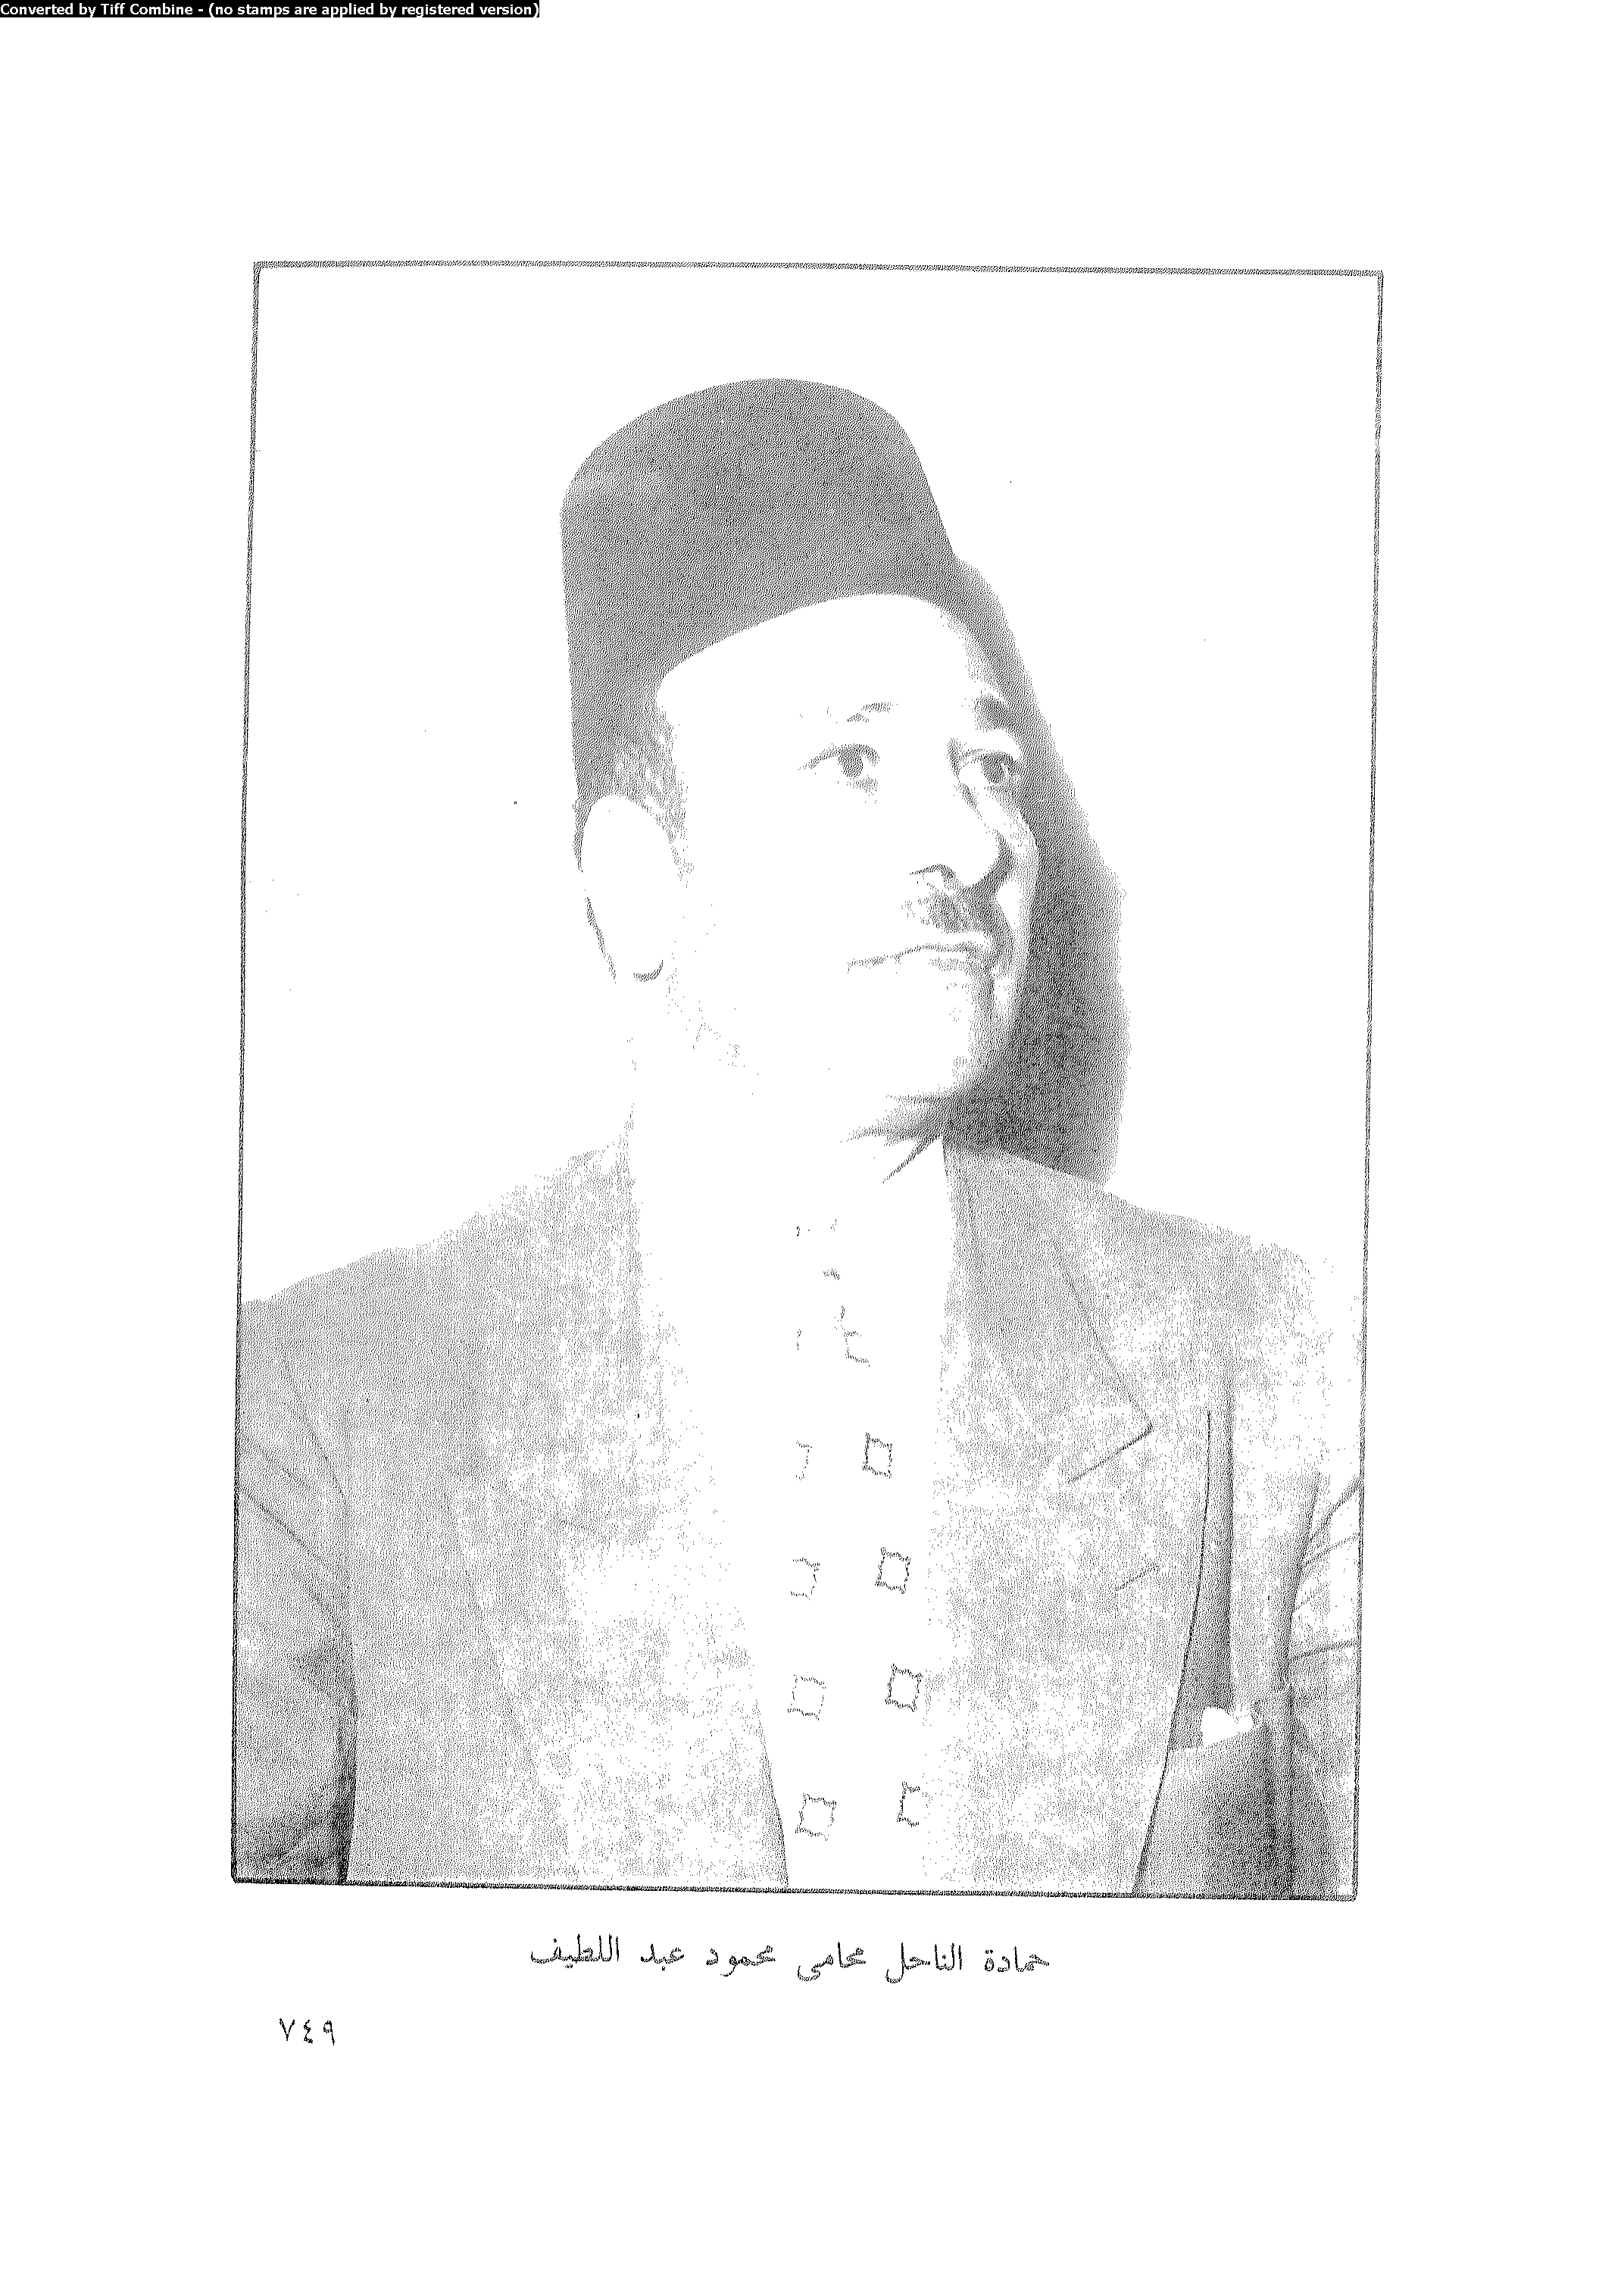 Converted by Tiff Combine - (no stamps are applied by registered version)
حمادة الناحل محامى محمود عبد اللطيف
٧٤٩